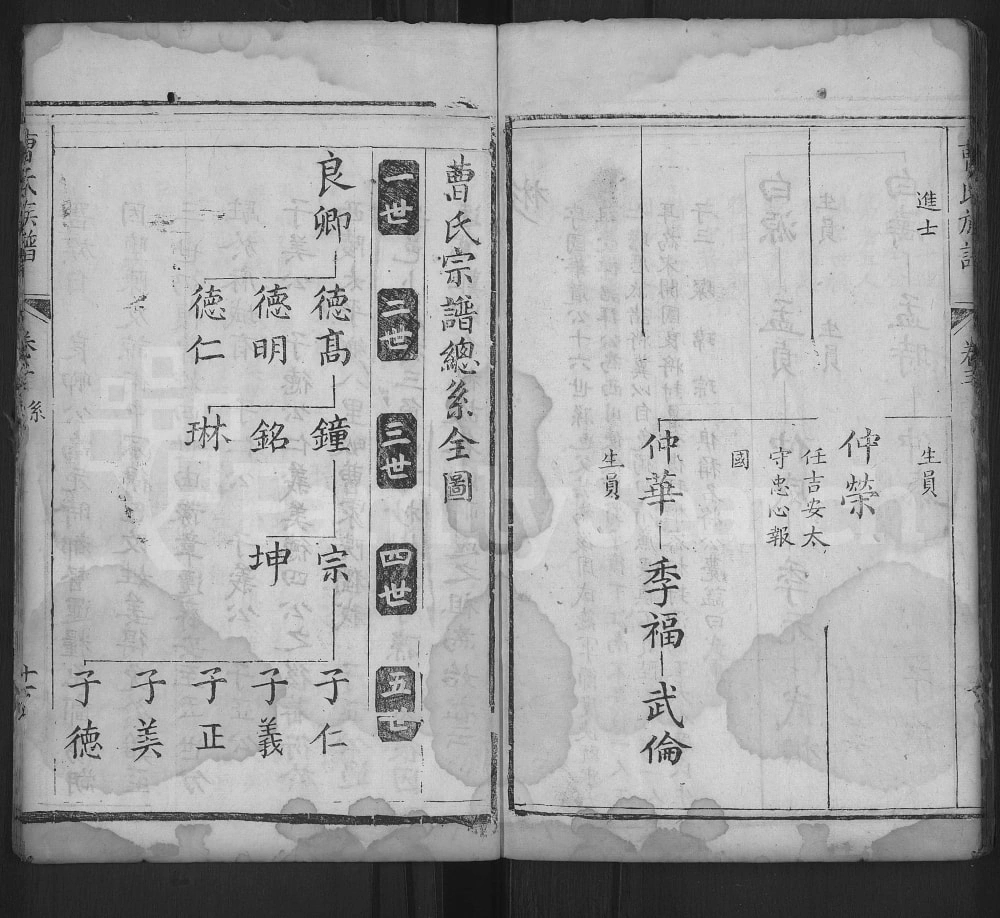 進士
生員
仲榮
任吉安太
守忠心報
國
仲華 季福 武倫
生員
曹氏宗譜總系全圖
一世 二世 三世 四世 五世
良卿
德高 德明 德仁
鐘 銘 琳
宗 坤
子仁 子義 子正 子美 子德
曹氏族譜
系